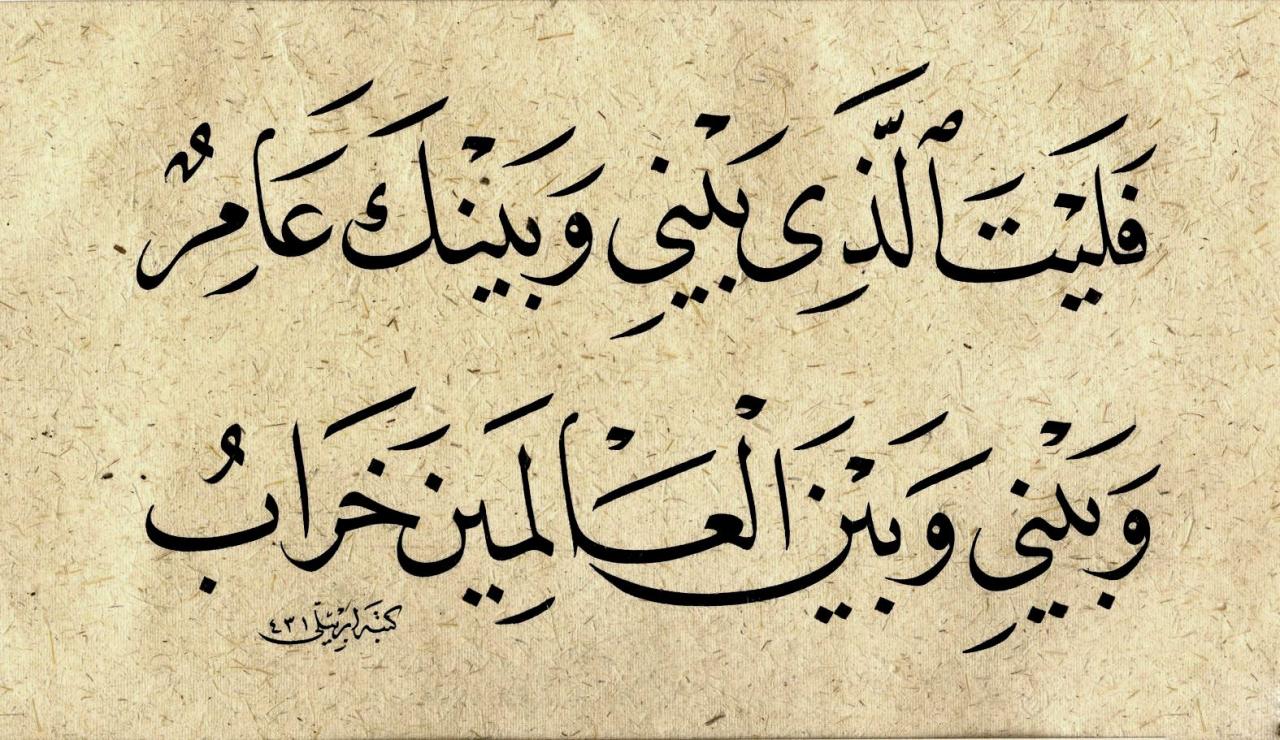 فَلَيْتَ ٱلَّذِي بَيْنِي وَبَيْنَكَ عَامِرٌ
وَبَيْنِي وَبَيْنَ الْعَالَمِينَ خَرَابُ
كتبه ١٤٣